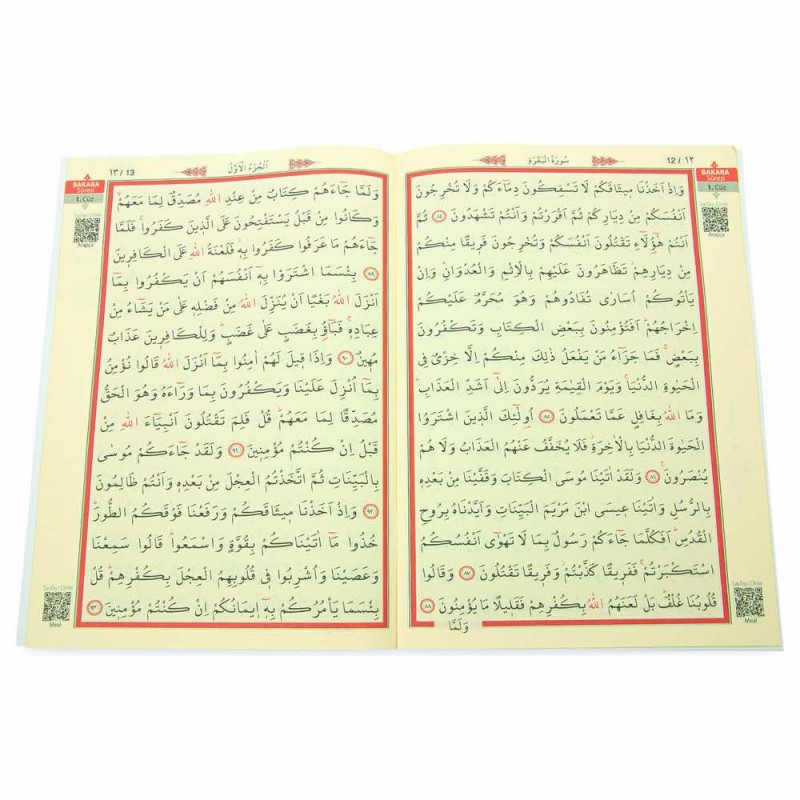 12 / ١٢
سُورَةُ الْبَقَرَةِ
BAKARA
Sûresi
1. Cüz
Sayfayı Dinle
Arapça
وَاِذْ اَخَذْنَا مِيثَاقَكُمْ لَا تَسْفِكُونَ دِمَٓاءَكُمْ وَلَا تُخْرِجُونَ
اَنْفُسَكُمْ مِنْ دِيَارِكُمْ ثُمَّ اَقْرَرْتُمْ وَاَنْتُمْ تَشْهَدُونَ ﴿٨٤﴾ ثُمَّ
اَنْتُمْ هٰٓؤُ۬لَٓاءِ تَقْتُلُونَ اَنْفُسَكُمْ وَتُخْرِجُونَ فَرِيقًا مِنْكُمْ
مِنْ دِيَارِهِمْۘ تَظَاهَرُونَ عَلَيْهِمْ بِالْاِثْمِ وَالْعُدْوَانِۜ وَاِنْ
يَأْتُوكُمْ اُسَارٰى تُفَادُوهُمْ وَهُوَ مُحَرَّمٌ عَلَيْكُمْ
اِخْرَاجُهُمْۜ اَفَتُؤْمِنُونَ بِبَعْضِ الْكِتَابِ وَتَكْفُرُونَ
بِبَعْضٍۚ فَمَا جَزَٓاءُ مَنْ يَفْعَلُ ذٰلِكَ مِنْكُمْ اِلَّا خِزْيٌ فِي
الْحَيٰوةِ الدُّنْيَاۚ وَيَوْمَ الْقِيٰمَةِ يُرَدُّونَ اِلٰٓى اَشَدِّ الْعَذَابِۜ
وَمَا اللّٰهُ بِغَافِلٍ عَمَّا تَعْمَلُونَ ﴿٨٥﴾ اُو۬لٰٓئِكَ الَّذِينَ اشْتَرَوُا
الْحَيٰوةَ الدُّنْيَا بِالْاٰخِرَةِۘ فَلَا يُخَفَّفُ عَنْهُمُ الْعَذَابُ وَلَا هُمْ
يُنْصَرُونَ ﴿٨٦﴾ وَلَقَدْ اٰتَيْنَا مُوسَى الْكِتَابَ وَقَفَّيْنَا مِنْ بَعْدِهٖ
بِالرُّسُلِ وَاٰتَيْنَا عِيسَى ابْنَ مَرْيَمَ الْبَيِّنَاتِ وَاَيَّدْنَاهُ بِرُوحِ
الْقُدُسِۜ اَفَكُلَّمَا جَٓاءَكُمْ رَسُولٌ بِمَا لَا تَهْوٰٓى اَنْفُسُكُمُ
اسْتَكْبَرْتُمْۚ فَفَرِيقًا كَذَّبْتُمْۘ وَفَرِيقًا تَقْتُلُونَ ﴿٨٧﴾ وَقَالُوا
قُلُوبُنَا غُلْفٌۜ بَلْ لَعَنَهُمُ اللّٰهُ بِكُفْرِهِمْ فَقَلِيلًا مَا يُؤْمِنُونَ ﴿٨٨﴾
وَلَمَّا
Sayfayı Dinle
Meal
١٣ / 13
اَلْجُزْءُ الْاَوَّلُ
BAKARA
Sûresi
1. Cüz
Sayfayı Dinle
Arapça
وَلَمَّا جَٓاءَهُمْ كِتَابٌ مِنْ عِنْدِ اللّٰهِ مُصَدِّقٌ لِمَا مَعَهُمْۙ
وَكَانُوا مِنْ قَبْلُ يَسْتَفْتِحُونَ عَلَى الَّذِينَ كَفَرُواۚ فَلَمَّا
جَٓاءَهُمْ مَا عَرَفُوا كَفَرُوا بِهٖۘ فَلَعْنَةُ اللّٰهِ عَلَى الْكَافِرِينَ
﴿٨٩﴾ بِئْسَمَا اشْتَرَوْا بِهٖٓ اَنْفُسَهُمْ اَنْ يَكْفُرُوا بِمَٓا
اَنْزَلَ اللّٰهُ بَغْيًا اَنْ يُنَزِّلَ اللّٰهُ مِنْ فَضْلِهٖ عَلٰى مَنْ يَشَٓاءُ مِنْ
عِبَادِهٖۚ فَبَٓاؤُ۫ بِغَضَبٍ عَلٰى غَضَبٍۜ وَلِلْكَافِرِينَ عَذَابٌ
مُهِينٌ ﴿٩٠﴾ وَاِذَا قِيلَ لَهُمْ اٰمِنُوا بِمَٓا اَنْزَلَ اللّٰهُ قَالُوا نُؤْمِنُ
بِمَٓا اُنْزِلَ عَلَيْنَا وَيَكْفُرُونَ بِمَا وَرَٓاءَهُ وَهُوَ الْحَقُّ
مُصَدِّقًا لِمَا مَعَهُمْۜ قُلْ فَلِمَ تَقْتُلُونَ اَنْبِيَٓاءَ اللّٰهِ مِنْ
قَبْلُ اِنْ كُنْتُمْ مُؤْمِنِينَ ﴿٩١﴾ وَلَقَدْ جَٓاءَكُمْ مُوسٰى
بِالْبَيِّنَاتِ ثُمَّ اتَّخَذْتُمُ الْعِجْلَ مِنْ بَعْدِهٖ وَاَنْتُمْ ظَالِمُونَ
﴿٩٢﴾ وَاِذْ اَخَذْنَا مِيثَاقَكُمْ وَرَفَعْنَا فَوْقَكُمُ الطُّورَۜ
خُذُوا مَٓا اٰتَيْنَاكُمْ بِقُوَّةٍ وَاسْمَعُواۜ قَالُوا سَمِعْنَا
وَعَصَيْنَا وَاُشْرِبُوا فِي قُلُوبِهِمُ الْعِجْلَ بِكُفْرِهِمْۜ قُلْ
بِئْسَمَا يَأْمُرُكُمْ بِهٖٓ اِيمَانُكُمْ اِنْ كُنْتُمْ مُؤْمِنِينَ ﴿٩٣﴾
Sayfayı Dinle
Meal